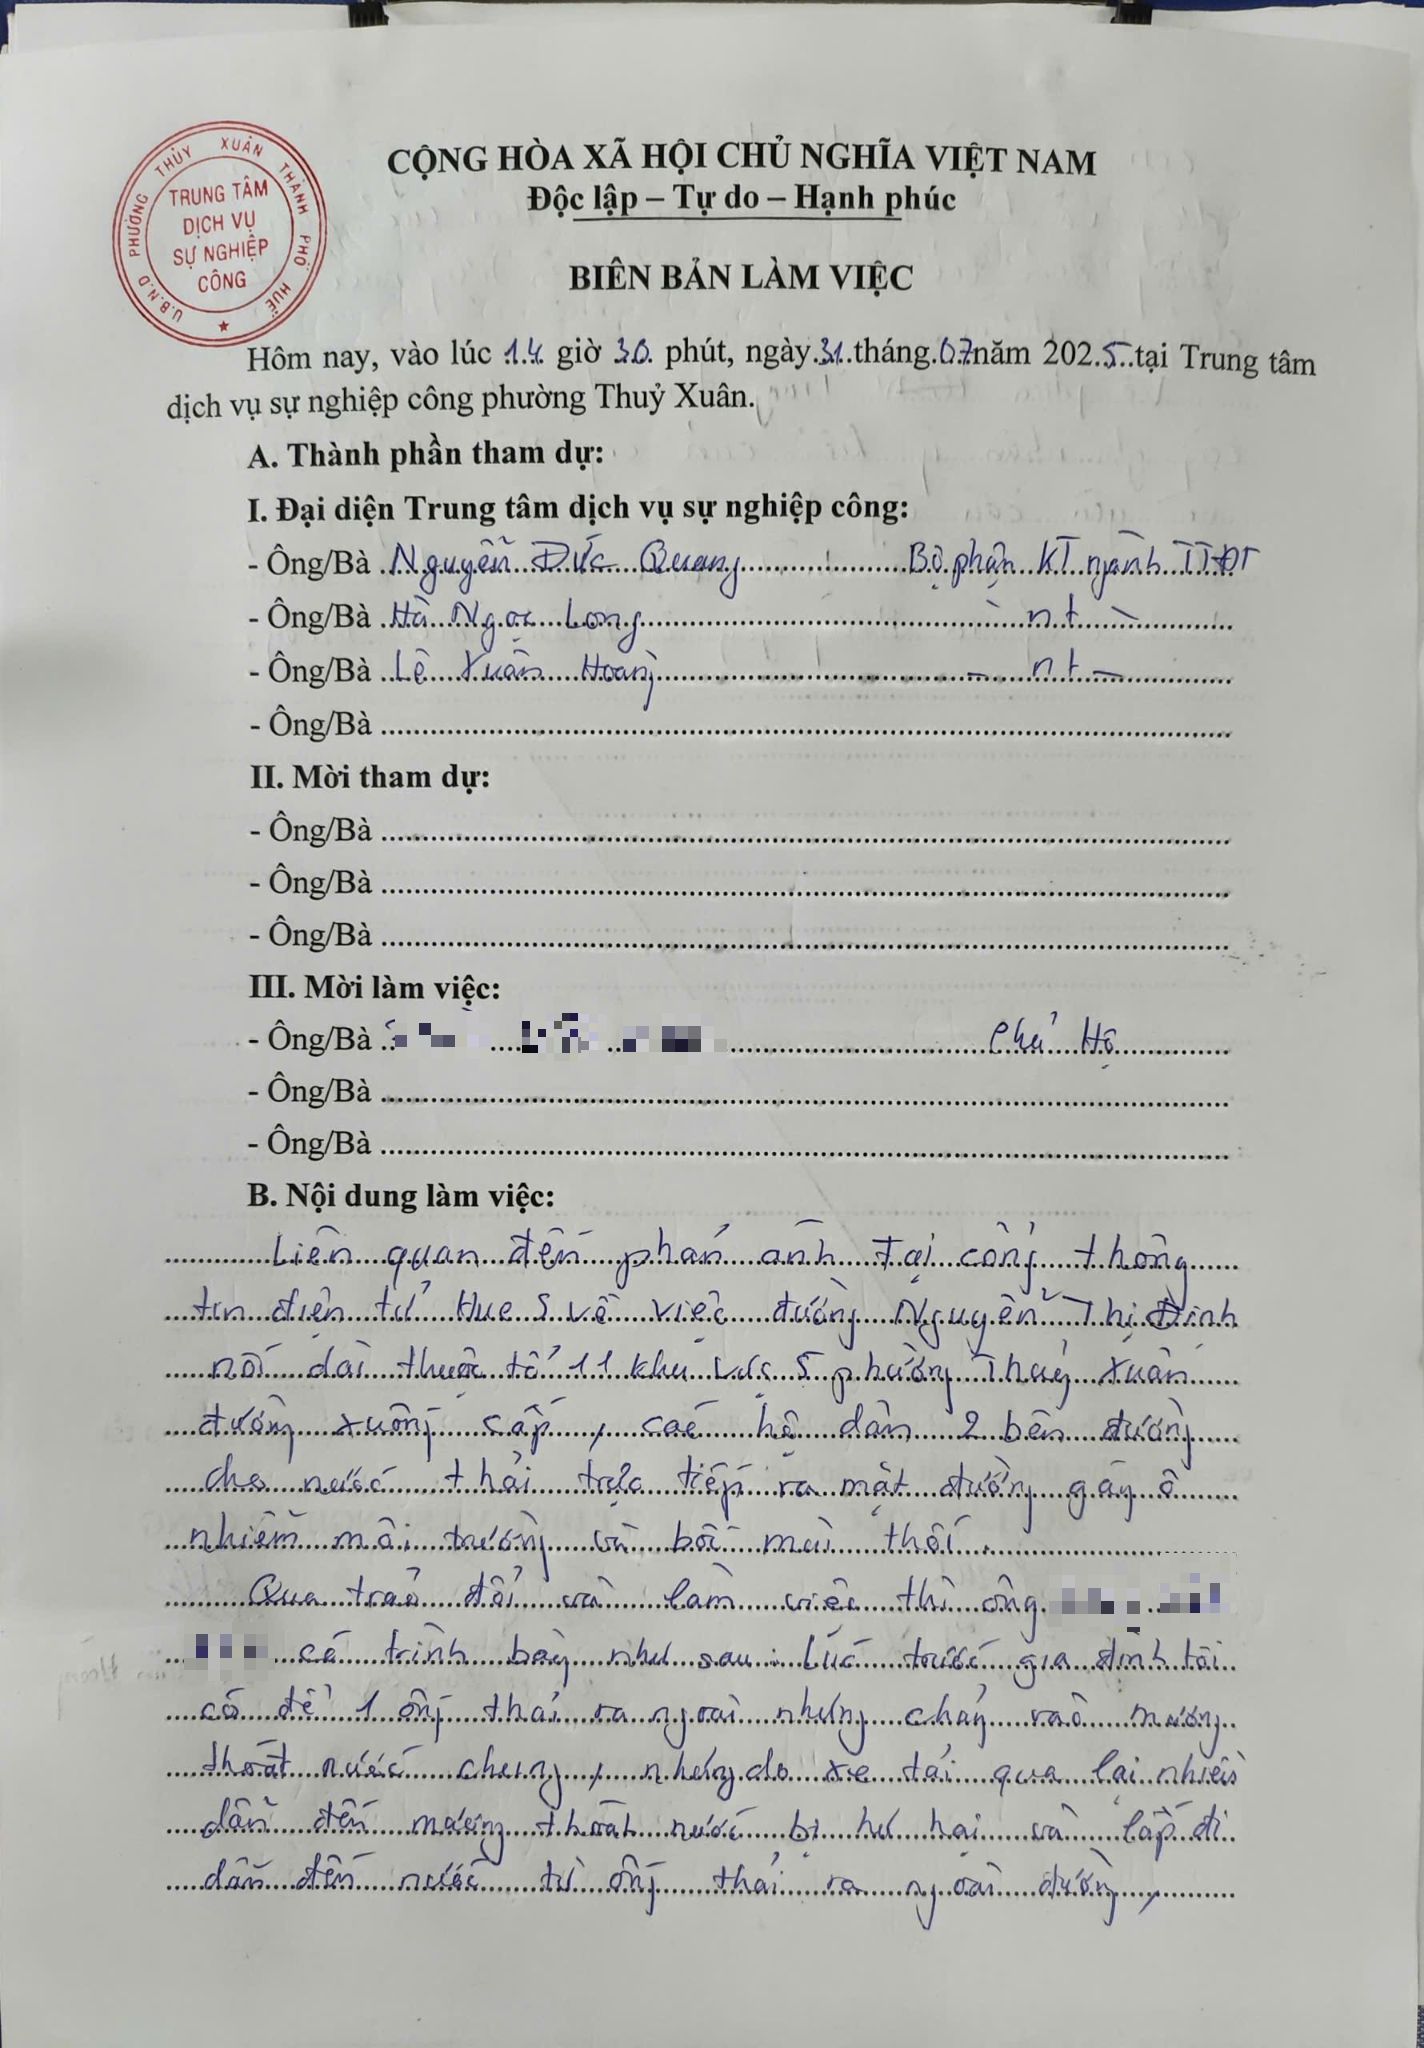 U.B.N.D PHƯỜNG THỦY XUÂN THÀNH PHỐ HUẾ
TRUNG TÂM
DỊCH VỤ
SỰ NGHIỆP
CÔNG
CỘNG HÒA XÃ HỘI CHỦ NGHĨA VIỆT NAM
Độc lập – Tự do – Hạnh phúc
BIÊN BẢN LÀM VIỆC
Hôm nay, vào lúc 14 giờ 30 phút, ngày 31 tháng 07 năm 2025 tại Trung tâm
dịch vụ sự nghiệp công phường Thuỷ Xuân.
A. Thành phần tham dự:
I. Đại diện Trung tâm dịch vụ sự nghiệp công:
- Ông/Bà Nguyễn Đức Quang Bộ phận KT ngành TTĐT
- Ông/Bà Hà Ngọc Long - nt -
- Ông/Bà Lê Xuân Hoàng - nt -
- Ông/Bà
II. Mời tham dự:
- Ông/Bà
- Ông/Bà
- Ông/Bà
III. Mời làm việc:
- Ông/Bà Chủ Hộ
- Ông/Bà
- Ông/Bà
B. Nội dung làm việc:
Liên quan đến phản ánh tại cổng thông
tin điện tử Hue S về việc đường Nguyễn Thị Định
nối dài thuộc tổ 11 khu vực 5 phường Thuỷ Xuân
đường xuống cấp, các hộ dân 2 bên đường
cho nước thải trực tiếp ra mặt đường gây ô
nhiễm môi trường và bốc mùi thối.
Qua trao đổi và làm việc thì ông
có trình bày như sau: Lúc trước gia đình tôi
có để 1 ống thải ra ngoài nhưng chảy vào mương
thoát nước chung, nhưng do xe tải qua lại nhiều
dẫn đến mương thoát nước bị hư hại và lấp đi
dẫn đến nước từ ống thải ra ngoài đường,